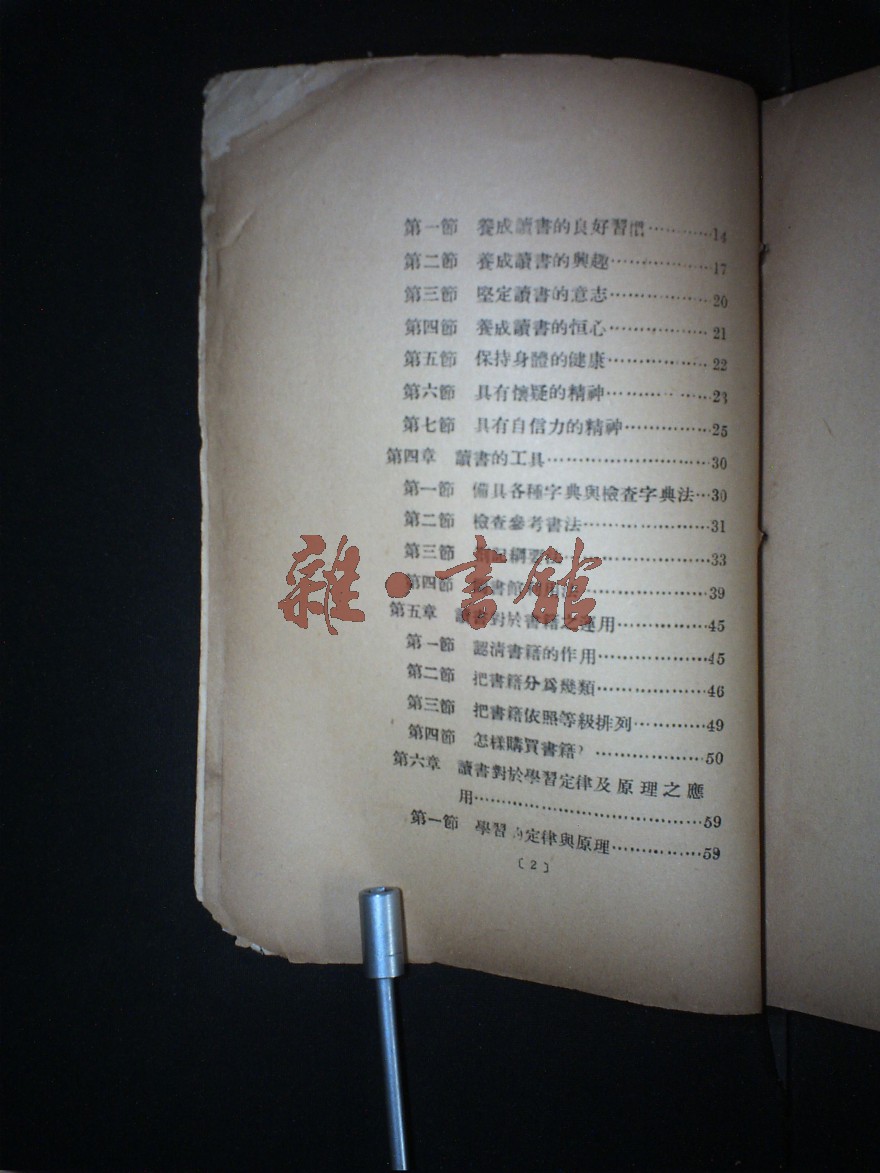 第一節　養成讀書的良好習慣…………14
第二節　養成讀書的興趣………………17
第三節　堅定讀書的意志………………20
第四節　養成讀書的恒心………………21
第五節　保持身體的健康………………22
第六節　具有懷疑的精神………………23
第七節　具有自信力的精神……………25
第四章　讀書的工具……………………………30
第一節　備具各種字典與檢查字典法…30
第二節　檢查參考書法…………………31
第三節　綱要法…………………33
第四節　書館利用法…………………39
第五章　讀書對於書籍之運用…………………45
第一節　認清書籍的作用………………45
第二節　把書籍分爲幾類………………46
第三節　把書籍依照等級排列…………49
第四節　怎樣購買書籍？………………50
第六章　讀書對於學習定律及原理之應
用……………………………………59
第一節　學習的定律與原理……………59
〔2〕
雜·書館